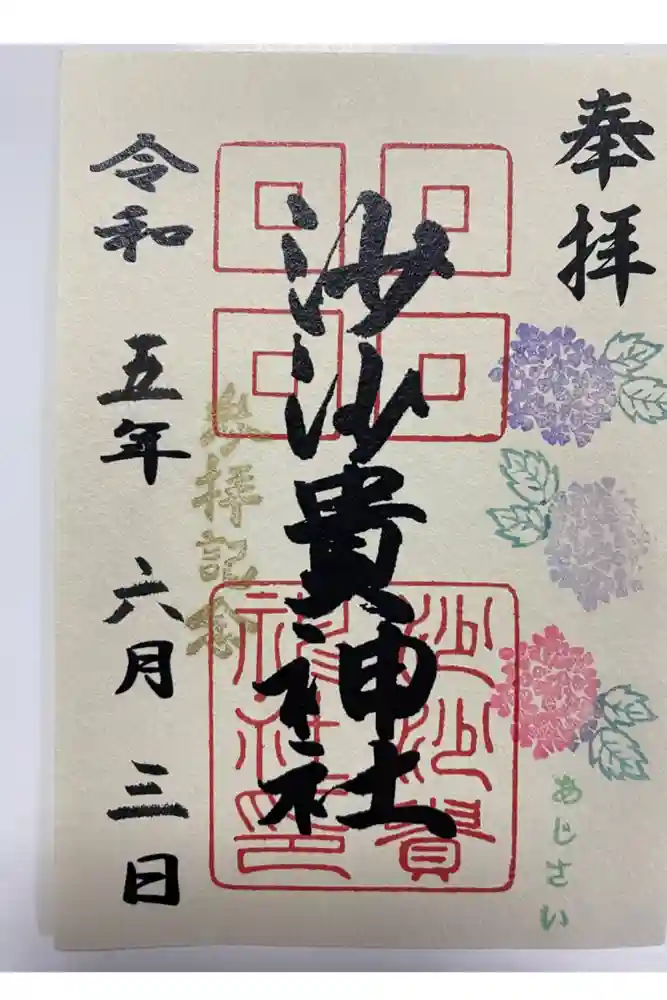 奉拝
あじさい
沙沙貴神社
沙沙貴
神社印
参拝記念
令和五年六月三日